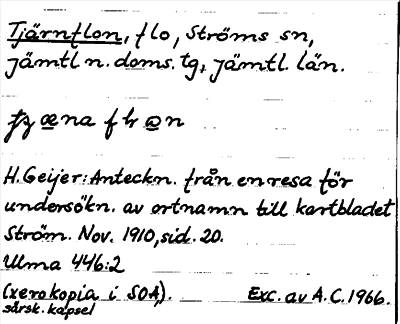 Tjärnflon, flo, Ströms sn,
jämtl n. doms. tg, jämtl. län.
H. Geijer: Anteckn. från en resa för
undersökn. av ortnamn till kartbladet
Ström. Nov. 1910, sid. 20.
Ulma 446:2
(xerokopia i SOA). Exc. av A.C. 1966.
särsk. kapsel